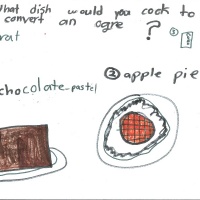 What dish would you cook to
convert an ogre ?
rat
①
chocolate-pastel
② apple pie